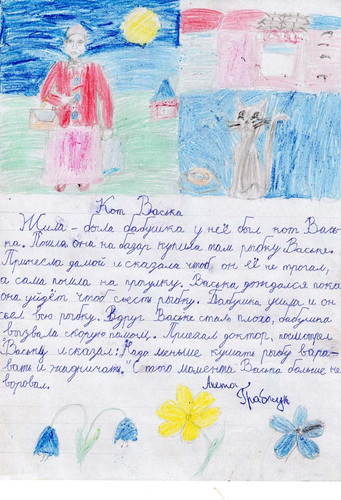 Кот Васька
Жила-была бабушка у неё был кот Вась-
ка. Пошла она на базар купила там рыбку Ваське.
Принесла дамой и сказала чтоб он её не трогал,
а сама пошла на прогулку. Васька дождался пока
она уйдёт чтоб съесть рыбку. Бабушка ушла и он
съел всю рыбку. Вдруг Ваське стало плохо, бабушка
вызвала скорую помощ. Приехал доктор, посмотрел
Ваську и сказал: Надо меньше кушать рыбу вара-
вать и жадничать. С того момента Васька больше не
воровал.
Анета
Грабчук